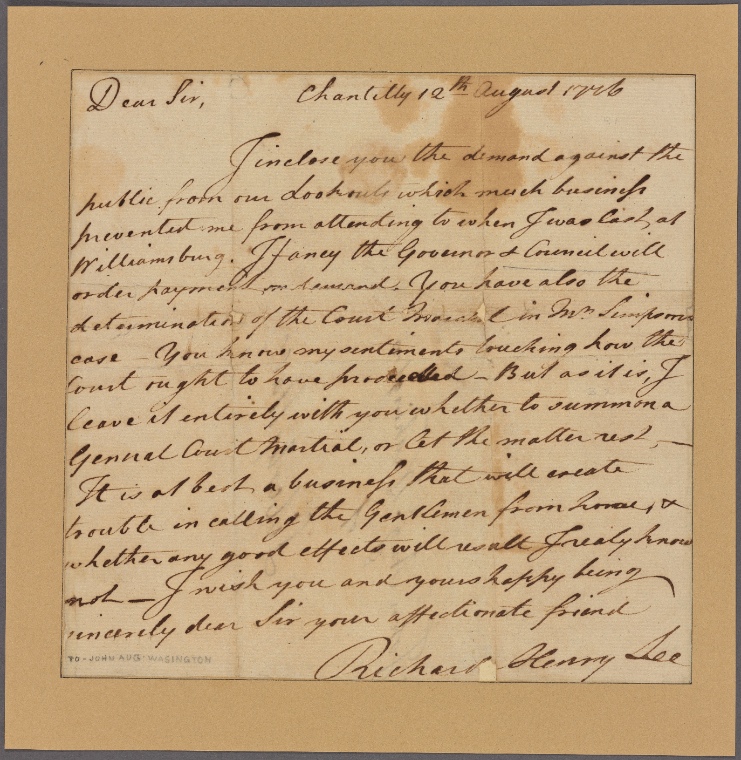 Dear Sir, Chantilly 12th August 1776
I inclose you the demand against the
public from our Lookouts which much business
prevented me from attending to when I was last at
Williamsburg. I fancy the Governor & Council will
order payment on demand. You have also the
determination of the Court Martial in Mr. Simpsons
case – You know my sentiments touching how the
Court ought to have proceeded – But as it is, I
leave it entirely with you whether to summon a
General Court Martial, or let the matter rest, —
It is at best a business that will create
trouble in calling the Gentlemen from home, &
whether any good effects will result I realy know
not — I wish you and yours happy being
sincerely dear Sir your affectionate friend
Richard Henry Lee
TO - JOHN AUG. WASINGTON